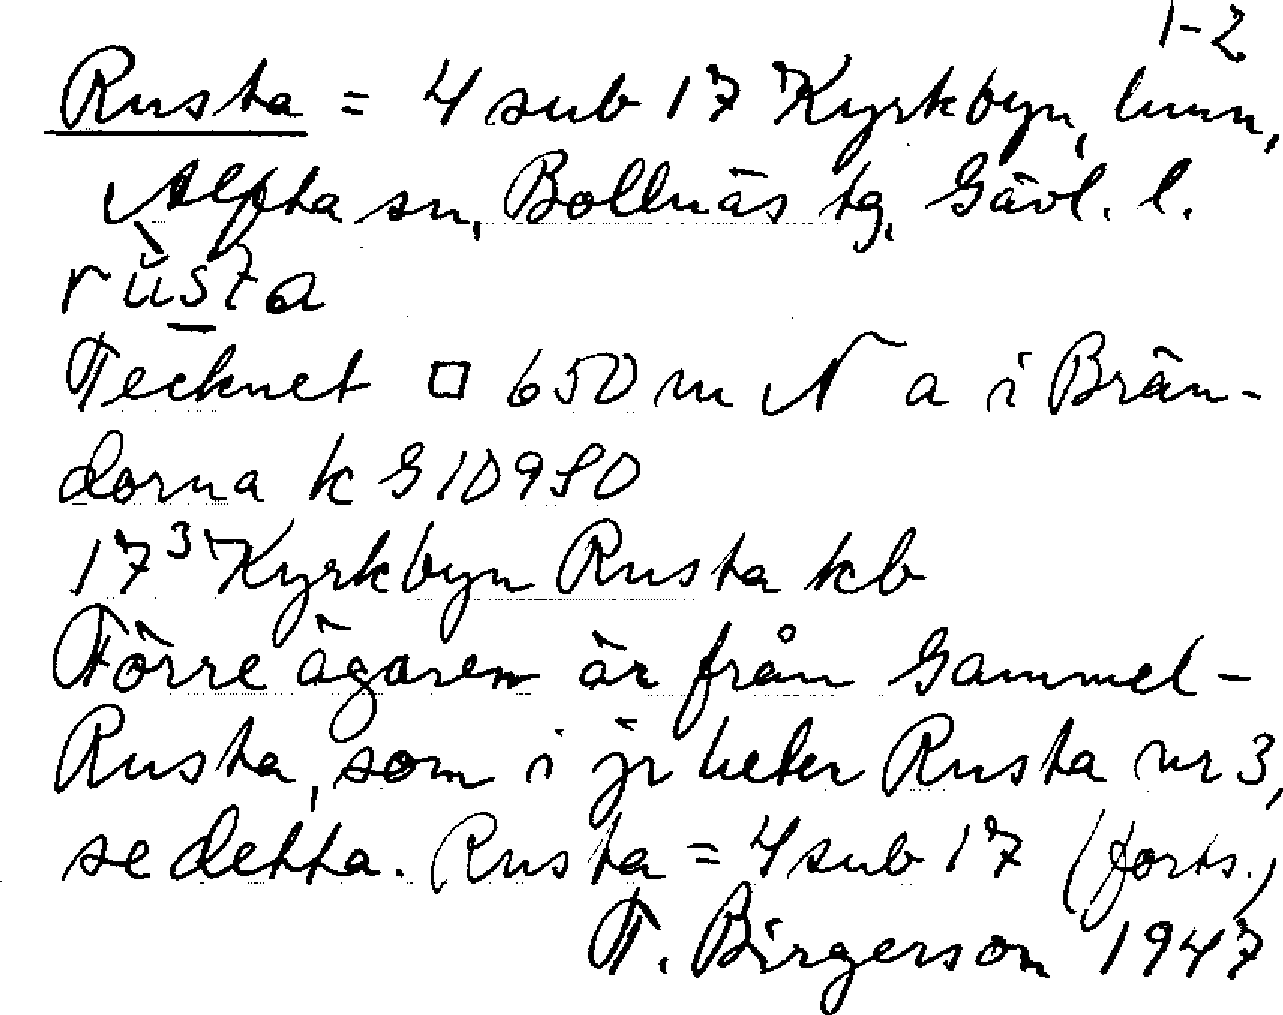 1-2
Rusta = 4 sub 17 Kyrkbyn, hmn,
Alfta sn, Bollnäs tg, Gävl. l.
rùsta
Tecknet □ 650 m N a i Brän-
dorna k G 10980
17³ Kyrkbyn Rusta kb
Förre ägaren är från Gammel-
Rusta, som i jr heter Rusta nr 3,
se detta. Rusta = 4 sub 17 (forts.)
T. Birgerson 1947